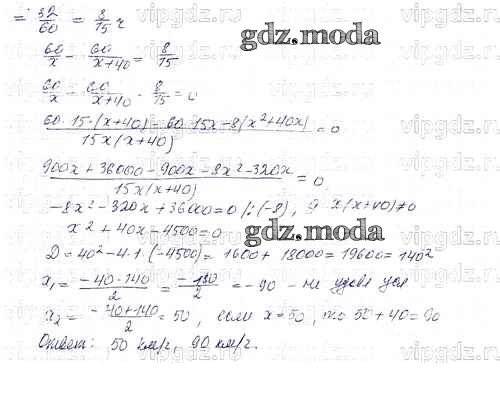 = 32/60 = 8/15 ч
gdz.moda
60/x - 60/(x+40) = 8/15
60/x - 60/(x+40) - 8/15 = 0
(60·15·(x+40) - 60·15x - 8(x²+40x))/(15x(x+40)) = 0
(900x + 36000 - 900x - 8x² - 320x)/(15x(x+40)) = 0
-8x² - 320x + 36000 = 0 |:(-8), x(x+40)≠0
x² + 40x - 4500 = 0
gdz.moda
D = 40² - 4·1·(-4500) = 1600 + 18000 = 19600 = 140²
x₁ = (-40-140)/2 = -180/2 = -90 - не удов усл
x₂ = (-40+140)/2 = 50, если x = 50, то 50 + 40 = 90
Ответ: 50 км/ч, 90 км/ч.
vipgdz.ru